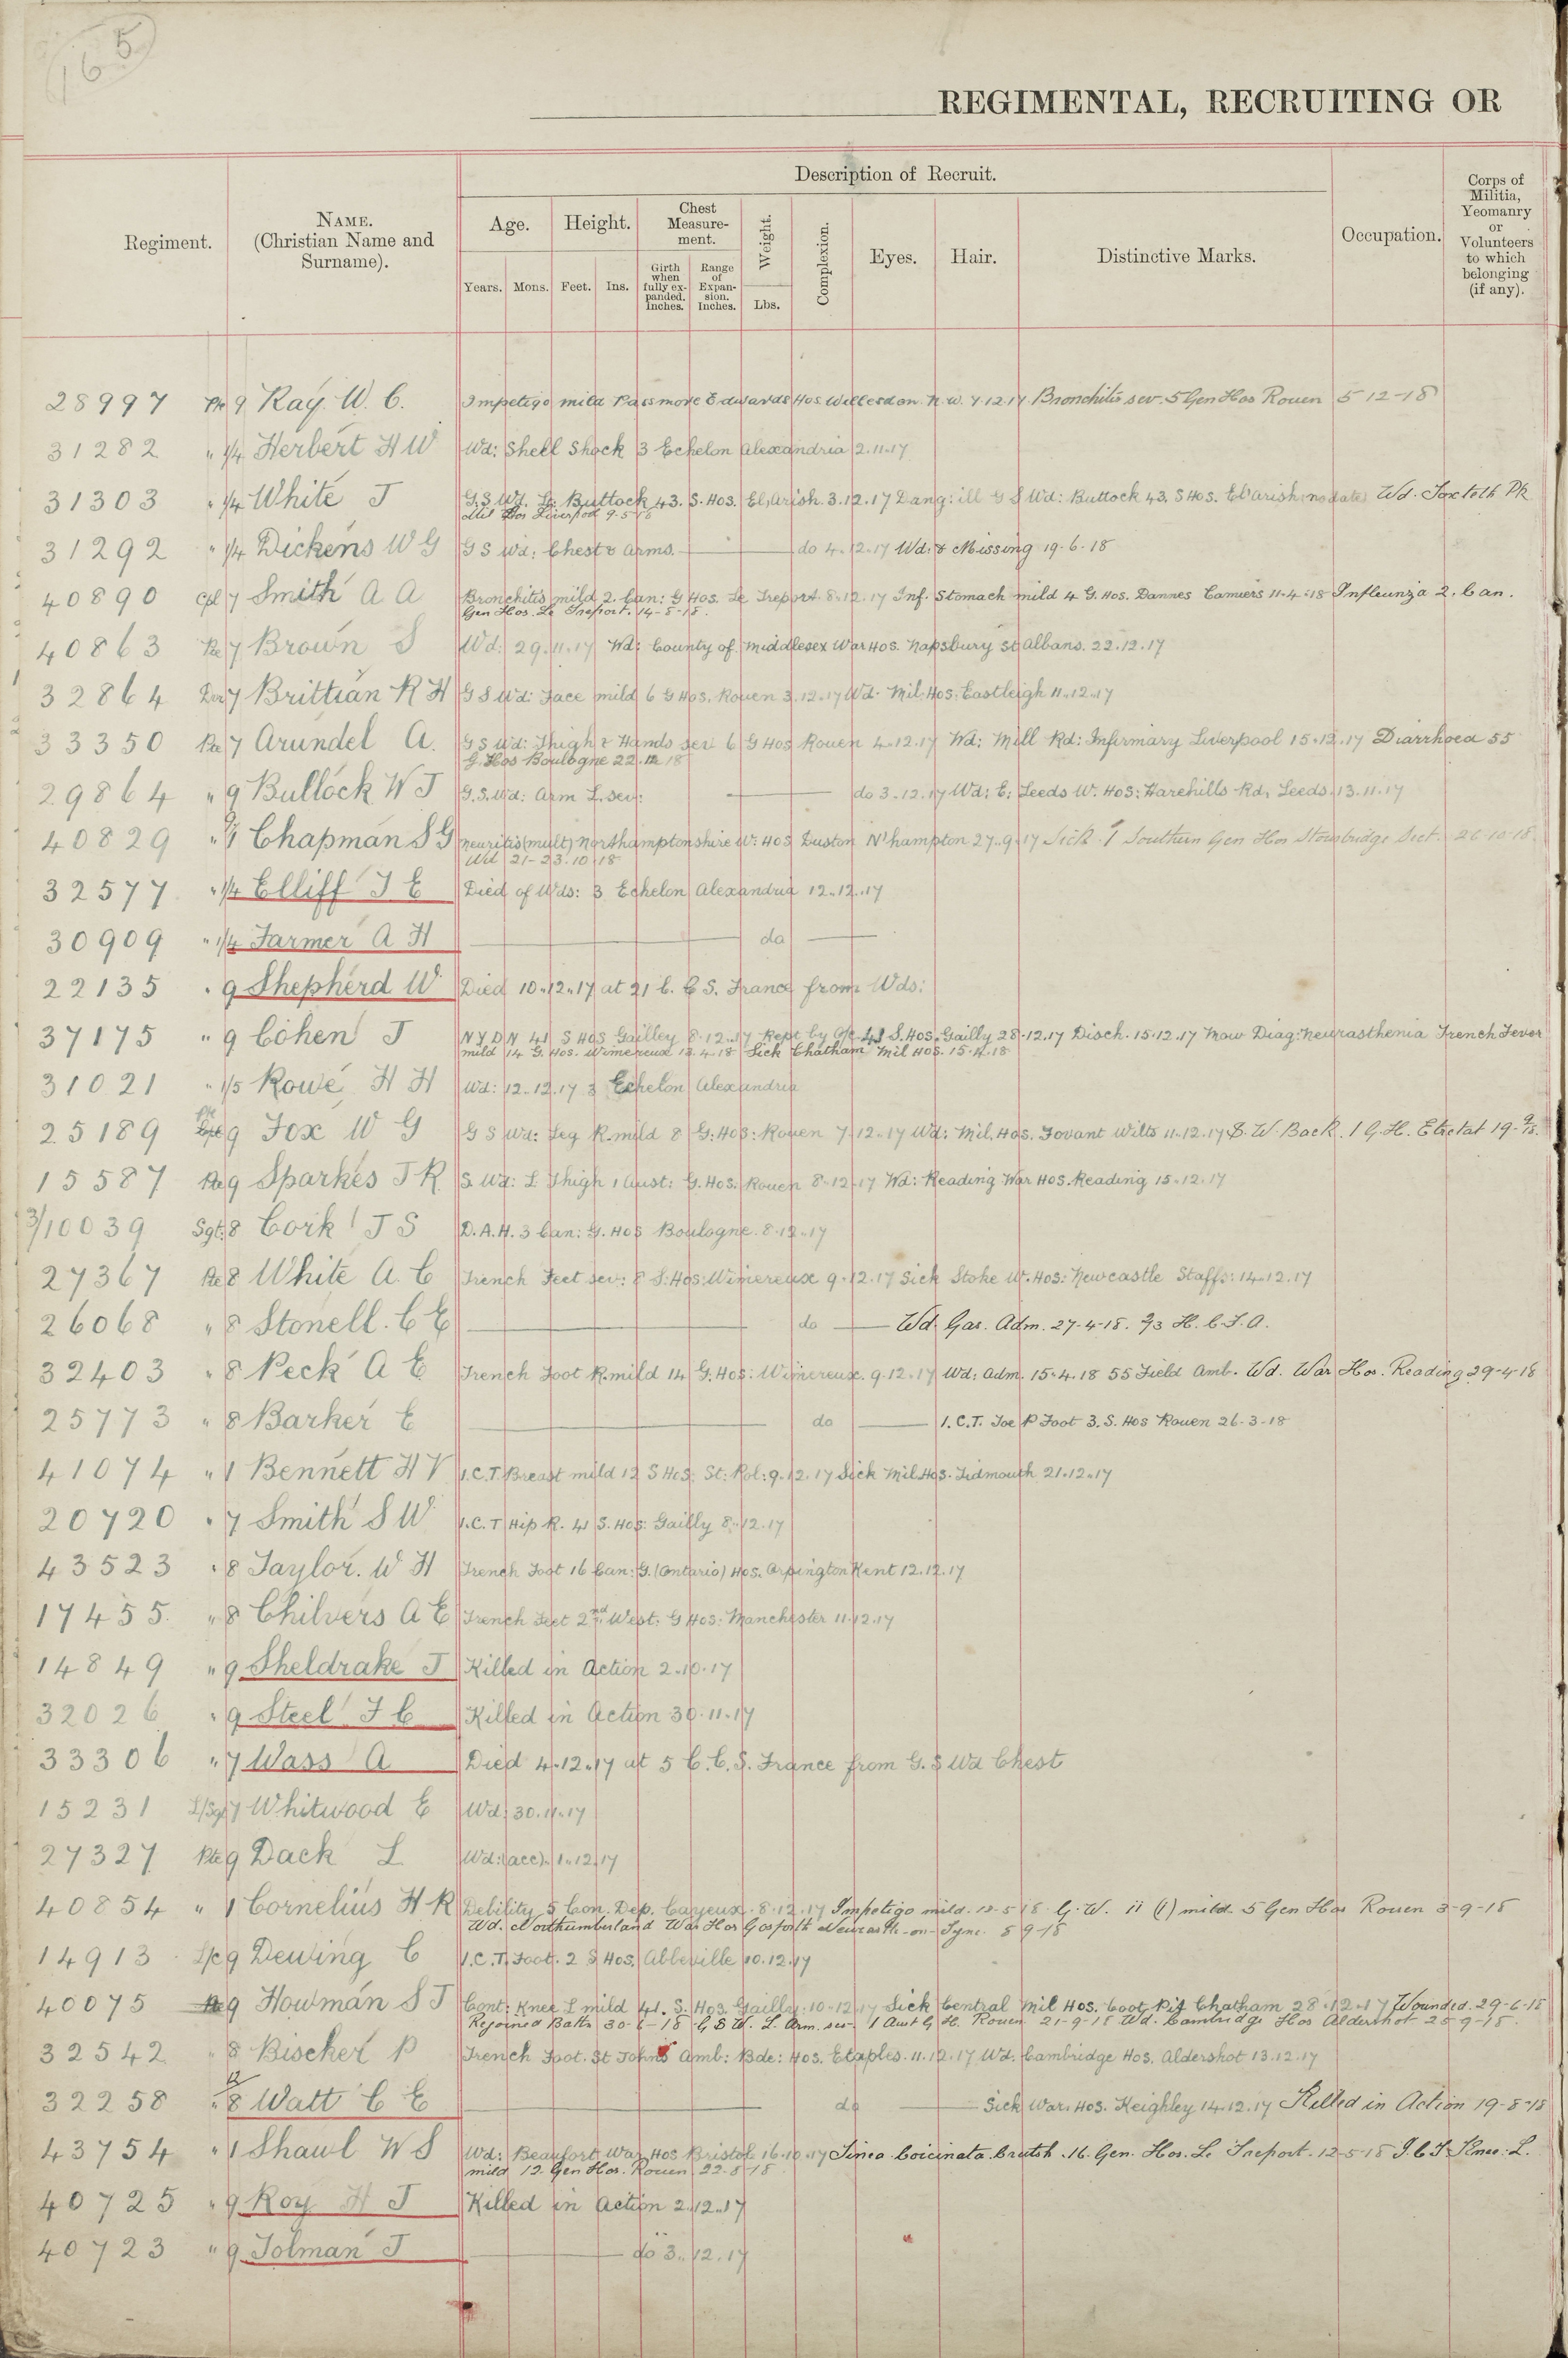 165
REGIMENTAL, RECRUITING OR
Regiment.
NAME.
(Christian Name and
Surname).
Description of Recruit.
Age.
Years. Mons.
Height.
Feet. Ins.
Chest
Measure-
ment.
Girth
when
fully ex-
panded.
Inches.
Range
of
Expan-
sion.
Inches.
Weight.
Lbs.
Complexion.
Eyes.
Hair.
Distinctive Marks.
Occupation.
Corps of
Militia,
Yeomanry
or
Volunteers
to which
belonging
(if any).
28997 Pte 9 Ray. W. C. Impetigo mild Passmore Edwards Hos. Willesden. N.W. 7.12.17. Bronchitis sev. 5 Gen Hos Rouen 5-12-18
31282 " 1/4 Herbert H W Wd: Shell Shock 3 Echelon Alexandria 2.11.17
31303 " 1/4 White J G.S. Wd. Lt. Buttock 43. S. Hos. El Arish. 3.12.17 Dang: ill G S Wd: Buttock 43. S Hos. El Arish (no date) Wd. Toxteth Pk
Mil Hos Liverpool 9-5-18
31292 " 1/4 Dickens W G G S Wd: Chest & Arms. do 4.12.17 Wd: & Missing 19-6-18
40890 Cpl 7 Smith A A Bronchitis mild 2. Can: G Hos. Le Treport. 8.12.17 Inf. Stomach mild 4 G. Hos. Dannes Camiers 11-4-18 Influenza 2. Can.
Gen Hos. Le Treport. 14-5-18.
40863 Pte 7 Brown S Wd: 29.11.17 Wd: County of Middlesex War Hos. Napsbury St Albans. 22.12.17
32864 7 Brittian R H G S Wd: Face mild 6 G Hos. Rouen 3.12.17 Wd. Mil: Hos. Eastleigh 11.12.17
33350 Pte 7 Arundel A. G S Wd: Thigh & Hands sev: 6 G Hos Rouen 4.12.17 Wd: Mill Rd: Infirmary Liverpool 15.12.17 Diarrhoea 55
G. Hos Boulogne 22.12.18
29864 " 9 Bullock W J G.S. Wd: Arm L. sev: do 3.12.17 Wd: E. Leeds W. Hos: Harehills Rd. Leeds. 13.11.17
40829 " Chapman S G Neuritis (mult) Northamptonshire W: Hos Duston N'hampton 27.9.17 Sick. 1 Southern Gen Hos Stourbridge Sect. 26-10-18.
Wd 21-23.10.18
32577 " 1/4 Elliff J E Died of Wds: 3 Echelon Alexandria 12.12.17
30909 " 1/4 Farmer A H do
22135 " 9 Shepherd W Died 10.12.17 at 21 C. C S. France from Wds:
37175 " 9 Cohen J N Y D N 41 S Hos Gailley 8.12.17 Rept by O/c 41 S. Hos. Gailly 28.12.17 Disch. 15.12.17 Now Diag: Neurasthenia Trench Fever
mild 14 G. Hos. Wimereux 13.4.18 Sick Chatham Mil Hos. 15.4.18
31021 " 1/5 Rowe H H Wd: 12.12.17 3 Echelon Alexandria
25189 Pte 9 Fox W G G S Wd: Leg R. mild 8 G: Hos: Rouen 7.12.17 Wd: Mil. Hos. Fovant Wilts 11.12.17 S. W. Back. 1 G. H. Etretat 19-9/18.
15587 Pte 9 Sparkes J R S. Wd: L Thigh 1 Aust: G. Hos. Rouen 8.12.17 Wd: Reading War Hos. Reading 15.12.17
3/10039 Sgt. 8 Cork J S D.A.H. 3 Can: G. Hos Boulogne. 8.12.17
27367 Pte 8 White A. C Trench Feet sev: 8 S: Hos: Wimereux 9.12.17 Sick Stoke W. Hos: Newcastle Staffs: 14.12.17
26068 " 8 Stonell. C E do Wd. Gas. Adm. 27-4-18. 2/3 H. C. F. A.
32403 " 8 Peck A E Trench Foot R. mild 14 G. Hos: Wimereux. 9.12.17 Wd: Adm. 15.4.18 55 Field Amb. Wd. War Hos. Reading 29-4-18
25773 " 8 Barker E do I.C.T. Toe R Foot 3. S. Hos Rouen 26-3-18
41074 " 1 Bennett H V I.C.T. Breast mild 12 S Hos: St: Pol: 9.12.17 Sick Mil Hos. Tidmouth 21.12.17
20720 " 7 Smith S W I.C.T Hip R. 41 S. Hos: Gailly 8.12.17
43523 " 8 Taylor. W H Trench Foot 16 Can: G. (Ontario) Hos. Orpington Kent 12.12.17
17455 " 8 Chilvers A E Trench Feet 2nd West: G Hos: Manchester 11.12.17
14849 " 9 Sheldrake J Killed in Action 2.10.17
32026 " 9 Steel F C Killed in Action 30.11.17
33306 " 7 Wass A Died 4.12.17 at 5 C.C.S. France from G.S Wd Chest
15231 L/Sgt 7 Whitwood E Wd: 30.11.17
27327 Pte 9 Dack L Wd: (acc). 1.12.17
40854 " 1 Cornelius H R Debility 5 Con. Dep. Cayeux. 8.12.17 Impetigo mild. 12-5-18 G. W. 11 (1) mild. 5 Gen Hos Rouen 3-9-18
Wd. Northumberland War Hos Gosforth Newcastle-on-Tyne. 8-9-18
14913 L/c 9 Dewing C I.C.T. Foot. 2 S Hos. Abbeville 10.12.17
40075 Pte 9 Howman S J Cont: Knee L mild 41. S. Hos. Gailly. 10-12-17 Sick Central Mil Hos. Coot Pit Chatham 28.12.17 Wounded. 29-6-18
Rejoined Battn 30-6-18 G S W. L. Arm. sev. 1 Aust G H. Rouen 21-9-18 Wd. Cambridge Hos Aldershot 25-9-18.
32542 " 8 Bischer P Trench Foot. St Johns Amb: Bde: Hos. Etaples. 11.12.17 Wd. Cambridge Hos. Aldershot 13.12.17
32258 " 8 Watt C E do Sick War. Hos. Keighley 14.12.17 Killed in Action 19-8-18
43754 " 1 Shaul W S Wd: Beaufort War Hos Bristol 16.10.17 Tinea Coicinata 16. Gen. Hos. Le Treport. 12-5-18 I.C.T. Knee. L.
mild 12 Gen Hos. Rouen 22-8-18
40725 " 9 Roy H J Killed in Action 2.12.17
40723 " 9 Tolman J do 3.12.17